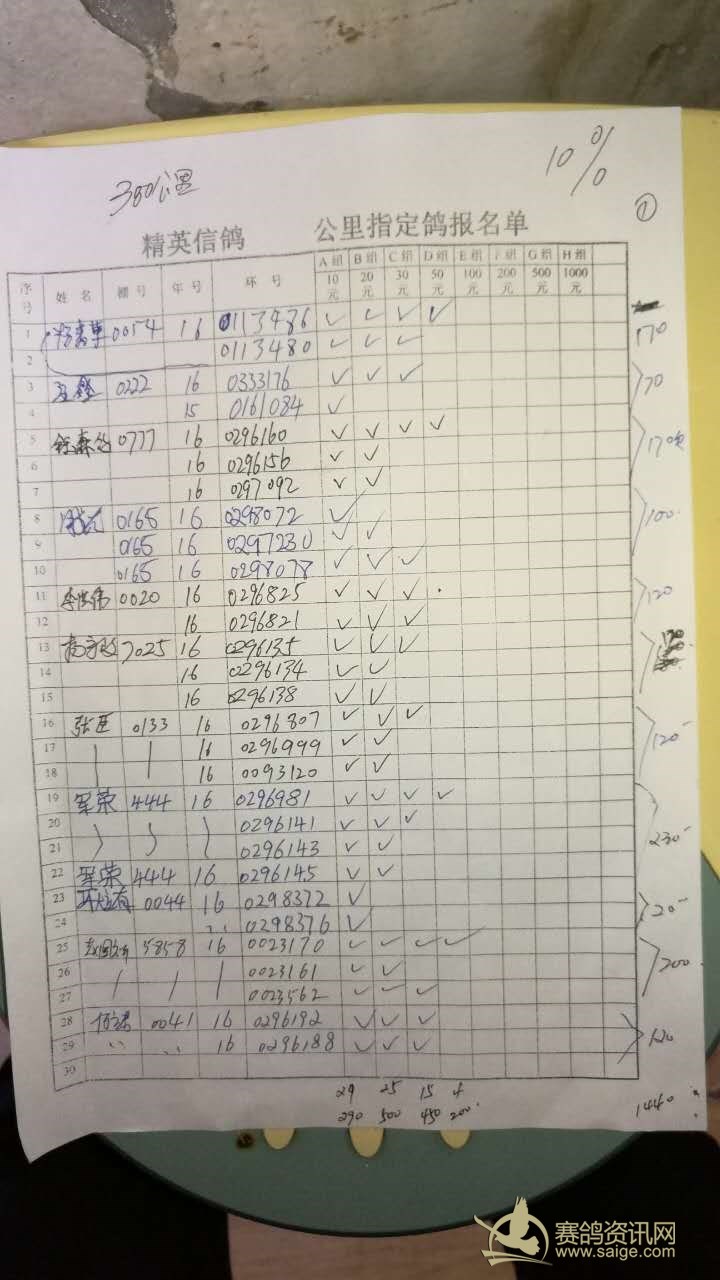 300公里
10%
①
精英信鸽 公里指定鸽报名单
序号 姓名 棚号 年号 环号 A组10元 B组20元 C组30元 D组50元 E组100元 F组200元 G组500元 H组1000元
1 0054 16 0113486 ✓ ✓ ✓ ✓ 170
2 0113480 ✓ ✓ ✓
3 0222 16 0333176 ✓ ✓ ✓ 70
4 15 0161084 ✓
5 0777 16 0296160 ✓ ✓ ✓ ✓ 170
6 16 0296156 ✓ ✓
7 16 0297092 ✓ ✓
8 0165 16 0298072 ✓ 100
9 0165 16 0297230 ✓ ✓
10 0165 16 0298078 ✓ ✓ ✓
11 0020 16 0296825 ✓ ✓ ✓ 120
12 16 0296821 ✓ ✓ ✓
13 7025 16 0296135 ✓ ✓ ✓
14 16 0296134 ✓ ✓
15 16 0296138 ✓ ✓
16 张臣 0133 16 0296807 ✓ ✓ ✓ 120-
17 16 0296999 ✓ ✓
18 16 0093120 ✓ ✓
19 军荣 444 16 0296981 ✓ ✓ ✓ ✓ 230-
20 0296141 ✓ ✓ ✓
21 0296143 ✓ ✓
22 军荣 444 16 0296145 ✓ ✓
23 0044 16 0298372 ✓ 20-
24 〃 0298376 ✓
25 5858 16 0023170 ✓ ✓ ✓ ✓ 200
26 0023161 ✓ ✓
27 0023562 ✓ ✓ ✓
28 0041 16 0296192 ✓ ✓ ✓ 120
29 〃 〃 16 0296188 ✓ ✓ ✓
30
29 25 15 4
290 500 450 200 1440
赛鸽资讯网
www.saige.com